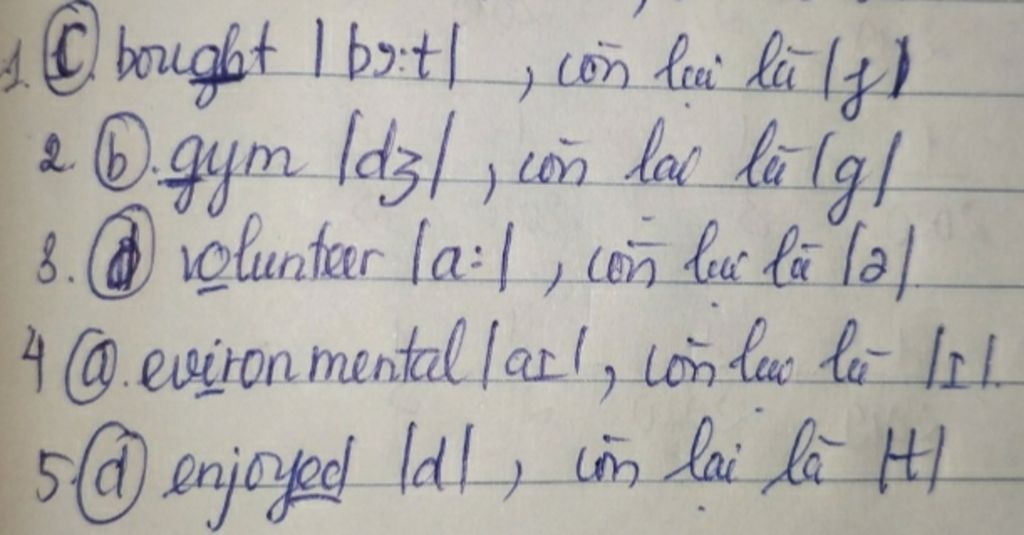 1. C. bought /bɔ:t/, còn lại là /f/
2. b. gym /dʒ/, còn lại là /g/
3. d volunteer /a:/, còn lại là /ə/
4 a. evironmental /aɪ/, còn lại là /ɪ/.
5. d enjoyed /d/, còn lại là /t/